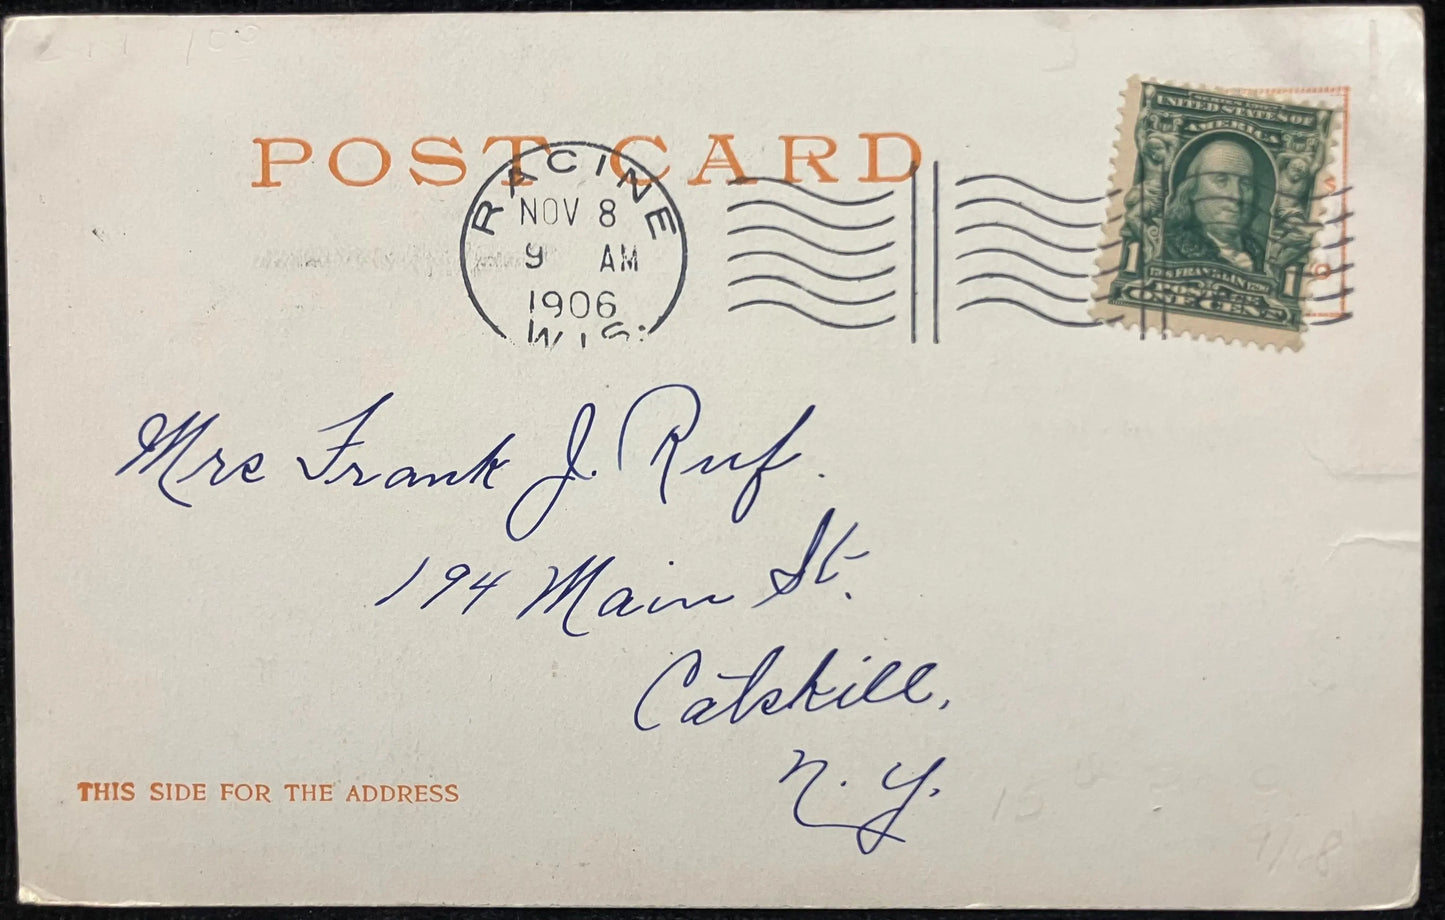 POST CARD
RACINE
NOV 8
9 AM
1906
WIS.
SERIES 1902
UNITED STATES OF
AMERICA
1 FRANKLIN 1
POSTAGE
ONE CENT
Mrs Frank J. Ruf.
194 Main St.
Catskill,
N. Y.
THIS SIDE FOR THE ADDRESS